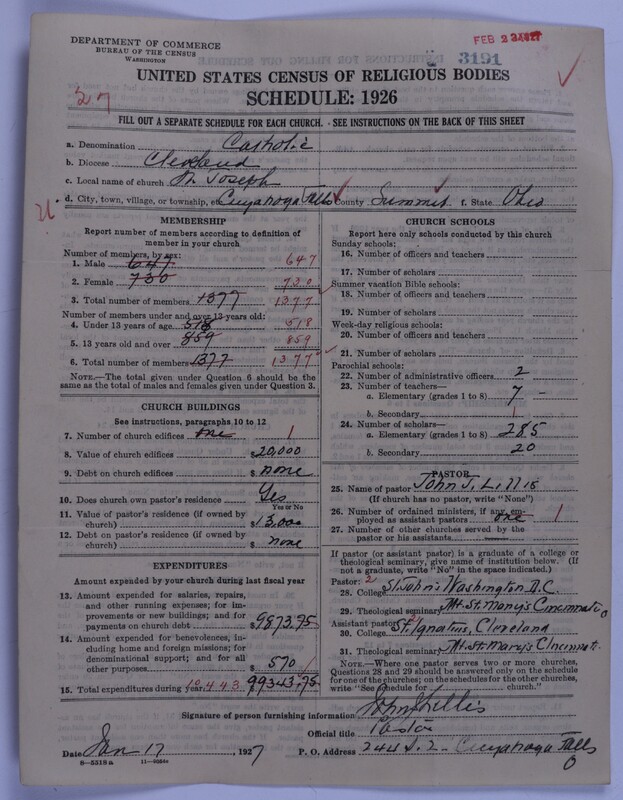 DEPARTMENT OF COMMERCE
BUREAU OF THE CENSUS
WASHINGTON
FEB 23 1927
3191
UNITED STATES CENSUS OF RELIGIOUS BODIES
SCHEDULE: 1926
27
FILL OUT A SEPARATE SCHEDULE FOR EACH CHURCH. - SEE INSTRUCTIONS ON THE BACK OF THIS SHEET
a. Denomination Catholic
b. Diocese Cleveland
c. Local name of church St. Joseph
d. City, town, village, or township, etc. Cuyahoga Falls County Summit f. State Ohio
MEMBERSHIP
Report number of members according to definition of
member in your church.
Number of members, by sex:
1. Male 647 647
2. Female 730 730
3. Total number of members 1377 1377
Number of members under and over 13 years old:
4. Under 13 years of age 518 518
5. 13 years old and over 859 859
6. Total number of members 1377 1377
NOTE.—The total given under Question 6 should be the
same as the total of males and females given under Question 3.
CHURCH BUILDINGS
See instructions, paragraphs 10 to 12
7. Number of church edifices one 1
8. Value of church edifices $20,000
9. Debt on church edifices $ none
10. Does church own pastor's residence Yes
Yes or No
11. Value of pastor's residence (if owned by
church) $13,000
12. Debt on pastor's residence (if owned by
church) $ none
EXPENDITURES
Amount expended by your church during last fiscal year
13. Amount expended for salaries, repairs,
and other running expenses; for im-
provements or new buildings; and for
payments on church debt $9873.75
14. Amount expended for benevolences, in-
cluding home and foreign missions; for
denominational support; and for all
other purposes $ 570
15. Total expenditures during year 10,443 $9943.75
CHURCH SCHOOLS
Report here only schools conducted by this church
Sunday schools:
16. Number of officers and teachers
17. Number of scholars
Summer vacation Bible schools:
18. Number of officers and teachers
19. Number of scholars
Week-day religious schools:
20. Number of officers and teachers
21. Number of scholars
Parochial schools:
22. Number of administrative officers 2
23. Number of teachers—
a. Elementary (grades 1 to 8) 7 -
b. Secondary 1
24. Number of scholars—
a. Elementary (grades 1 to 8) 285
b. Secondary 20
PASTOR
25. Name of pastor John J. Lillis
(If church has no pastor, write "None")
26. Number of ordained ministers, if any, em-
ployed as assistant pastors one 1
27. Number of other churches served by the
pastor or his assistants
If pastor (or assistant pastor) is a graduate of a college or
theological seminary, give name of institution below. (If
not a graduate, write "No" in the space indicated.)
Pastor: 2
28. College St. John's Washington D.C.
29. Theological seminary Mt. St. Mary's Cincinnati O
Assistant pastor:
30. College St. Ignatius, Cleveland
31. Theological seminary Mt. St. Mary's Cincinnati.
NOTE.—Where one pastor serves two or more churches,
Questions 28 and 29 should be answered only on the schedule
for one of the churches; on the schedules for the other churches,
write "See schedule for church."
Signature of person furnishing information John J Lillis
Official title Pastor
Date Jan 17, 1927 P. O. Address 244 S. 2 Cuyahoga Falls
O
8—5318a 11—9056